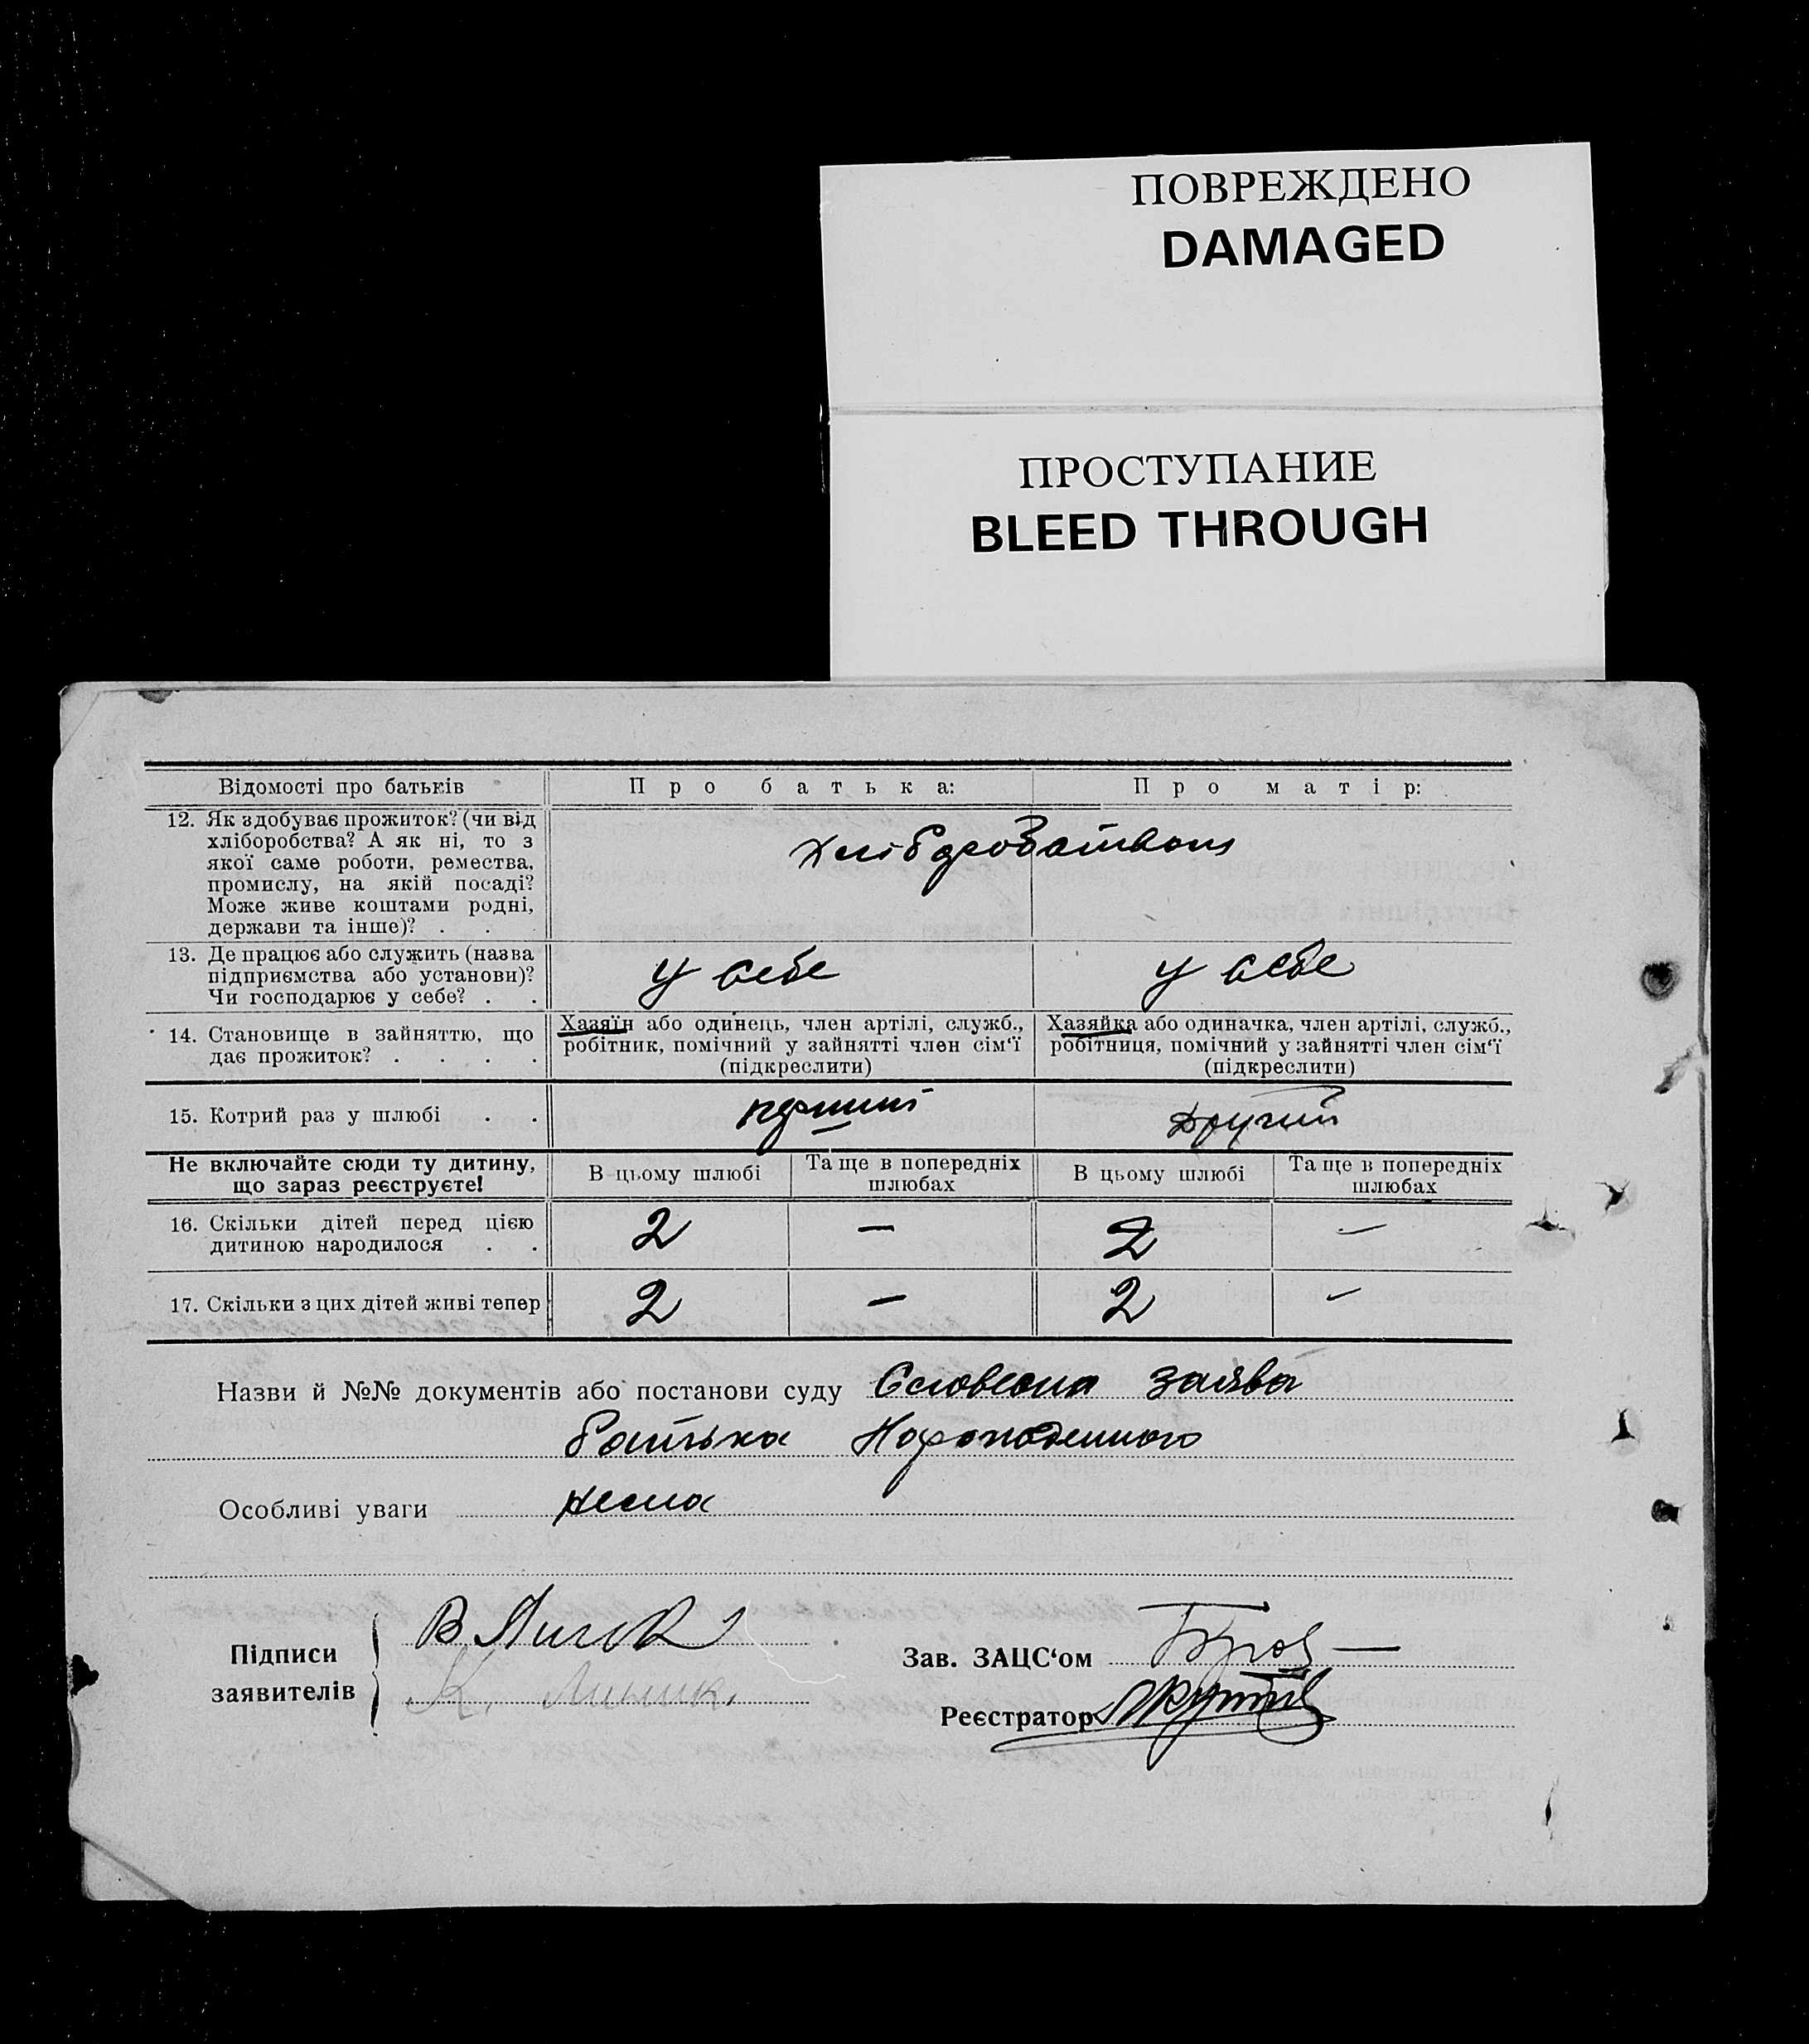 ПОВРЕЖДЕНО
DAMAGED
ПРОСТУПАНИЕ
BLEED THROUGH
Відомості про батьків
Про батька:
Про матір:
12. Як здобуває прожиток? (чи від
хліборобства? А як ні, то з
якої саме роботи, ремества,
промислу, на якій посаді?
Може живе коштами родні,
держави та інше)? . . .
13. Де працює або служить (назва
підприємства або установи)?
Чи господарює у себе? . .
у себе
у себе
14. Становище в зайняттю, що
дає прожиток? . . . .
Хазяїн або одинець, член артілі, служб.,
робітник, помічний у зайнятті член сім‘ї
(підкреслити)
Хазяйка або одиначка, член артілі, служб.,
робітниця, помічний у зайнятті член сім‘ї
(підкреслити)
15. Котрий раз у шлюбі . .
перший
другий
Не включайте сюди ту дитину,
що зараз реєструєте!
В цьому шлюбі
Та ще в попередніх
шлюбах
В цьому шлюбі
Та ще в попередніх
шлюбах
16. Скільки дітей перед цією
дитиною народилося . .
2 — 2 —
17. Скільки з цих дітей живі тепер
2 — 2 —
Назви й №№ документів або постанови суду Словесна заява
батька
Особливі уваги нема
Підписи
заявителів
В
К.
Зав. ЗАЦС‘ом
Реєстратор